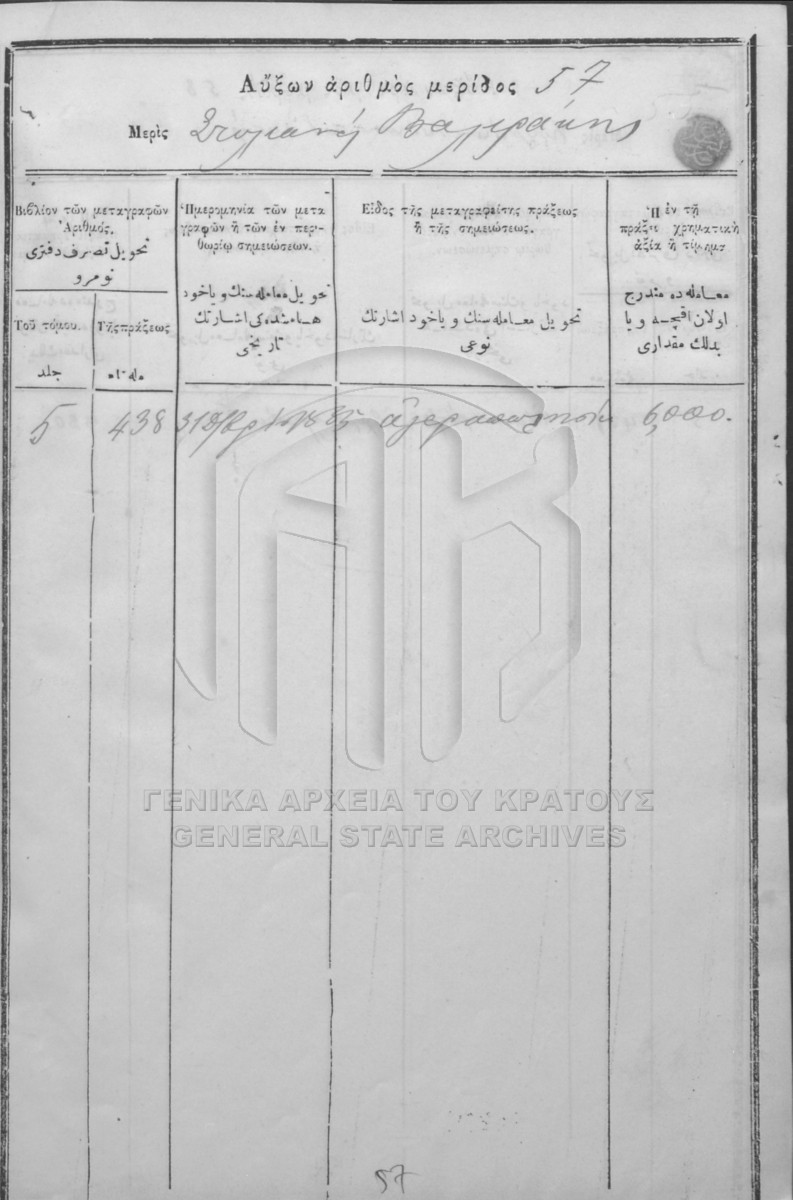 Αὔξων ἀριθμὸς μερίδος 57
Μερὶς Στυλιανή
Βιβλίον τῶν μεταγραφῶν
Ἀριθμός.
تحويل تصرف دفترى
نومرو
Τοῦ τόμου.
جلد
Τῆς πράξεως
Ἡμερομηνία τῶν μετα
γραφῶν ἢ τῶν ἐν περι-
θωρίῳ σημειώσεων.
تحويل معامله سنك وياخود
هامشده كى اشارتك
تاريخى
Εἶδος τῆς μεταγραφείσης πράξεως
ἢ τῆς σημειώσεως.
تحويل معامله سنك وياخود اشارتك
نوعى
Ἡ ἐν τῇ
πράξει χρηματικὴ
ἀξία ἢ τίμημα
معامله ده مندرج
اولان اقچه ويا
بدلك مقدارى
5 438 31 1885 ἀγοραπωλησία 6,000.
ΓΕΝΙΚΑ ΑΡΧΕΙΑ ΤΟΥ ΚΡΑΤΟΥΣ
GENERAL STATE ARCHIVES
57